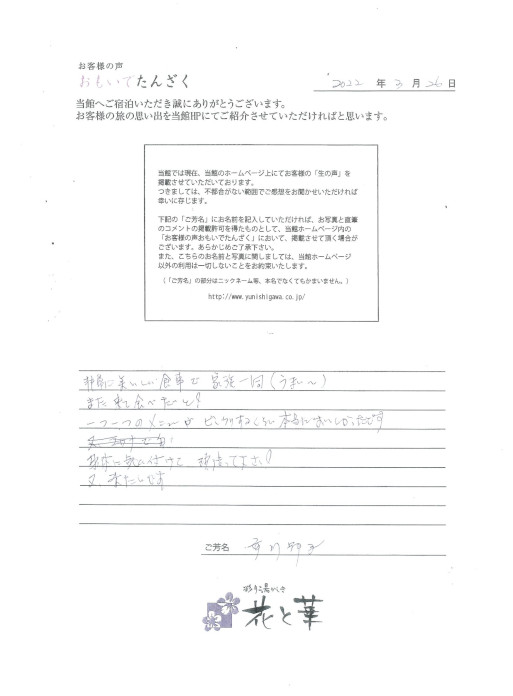 お客様の声
おもいでたんざく
2022 年 3 月 26 日
当館へご宿泊いただき誠にありがとうございます。
お客様の旅の思い出を当館HPにてご紹介させていただければと思います。
当館では現在、当館のホームページ上にてお客様の「生の声」を
掲載させていただいております。
つきましては、不都合がない範囲でご感想をお聞かせいただければ
幸いに存じます。
下記の「ご芳名」にお名前を記入していただければ、お写真と直筆
のコメントの掲載許可を得たものとして、当館ホームページ内の
「お客様の声おもいでたんざく」において、掲載させて頂く場合が
ございます。あらかじめご了承下さい。
また、こちらのお名前と写真に関しましては、当館ホームページ
以外の利用は一切しないことをお約束いたします。
(「ご芳名」の部分はニックネーム等、本名でなくてもかまいません。)
http://www.yunishigawa.co.jp/
非常に美いしい食事で 家族一同(うまい〜)
また来て食べたいと!
一つ一つのメニューが ビックリするくらい 本当においしかったです
気を付けて 頑張って下さい!
又、来たいです
ご芳名
花と華